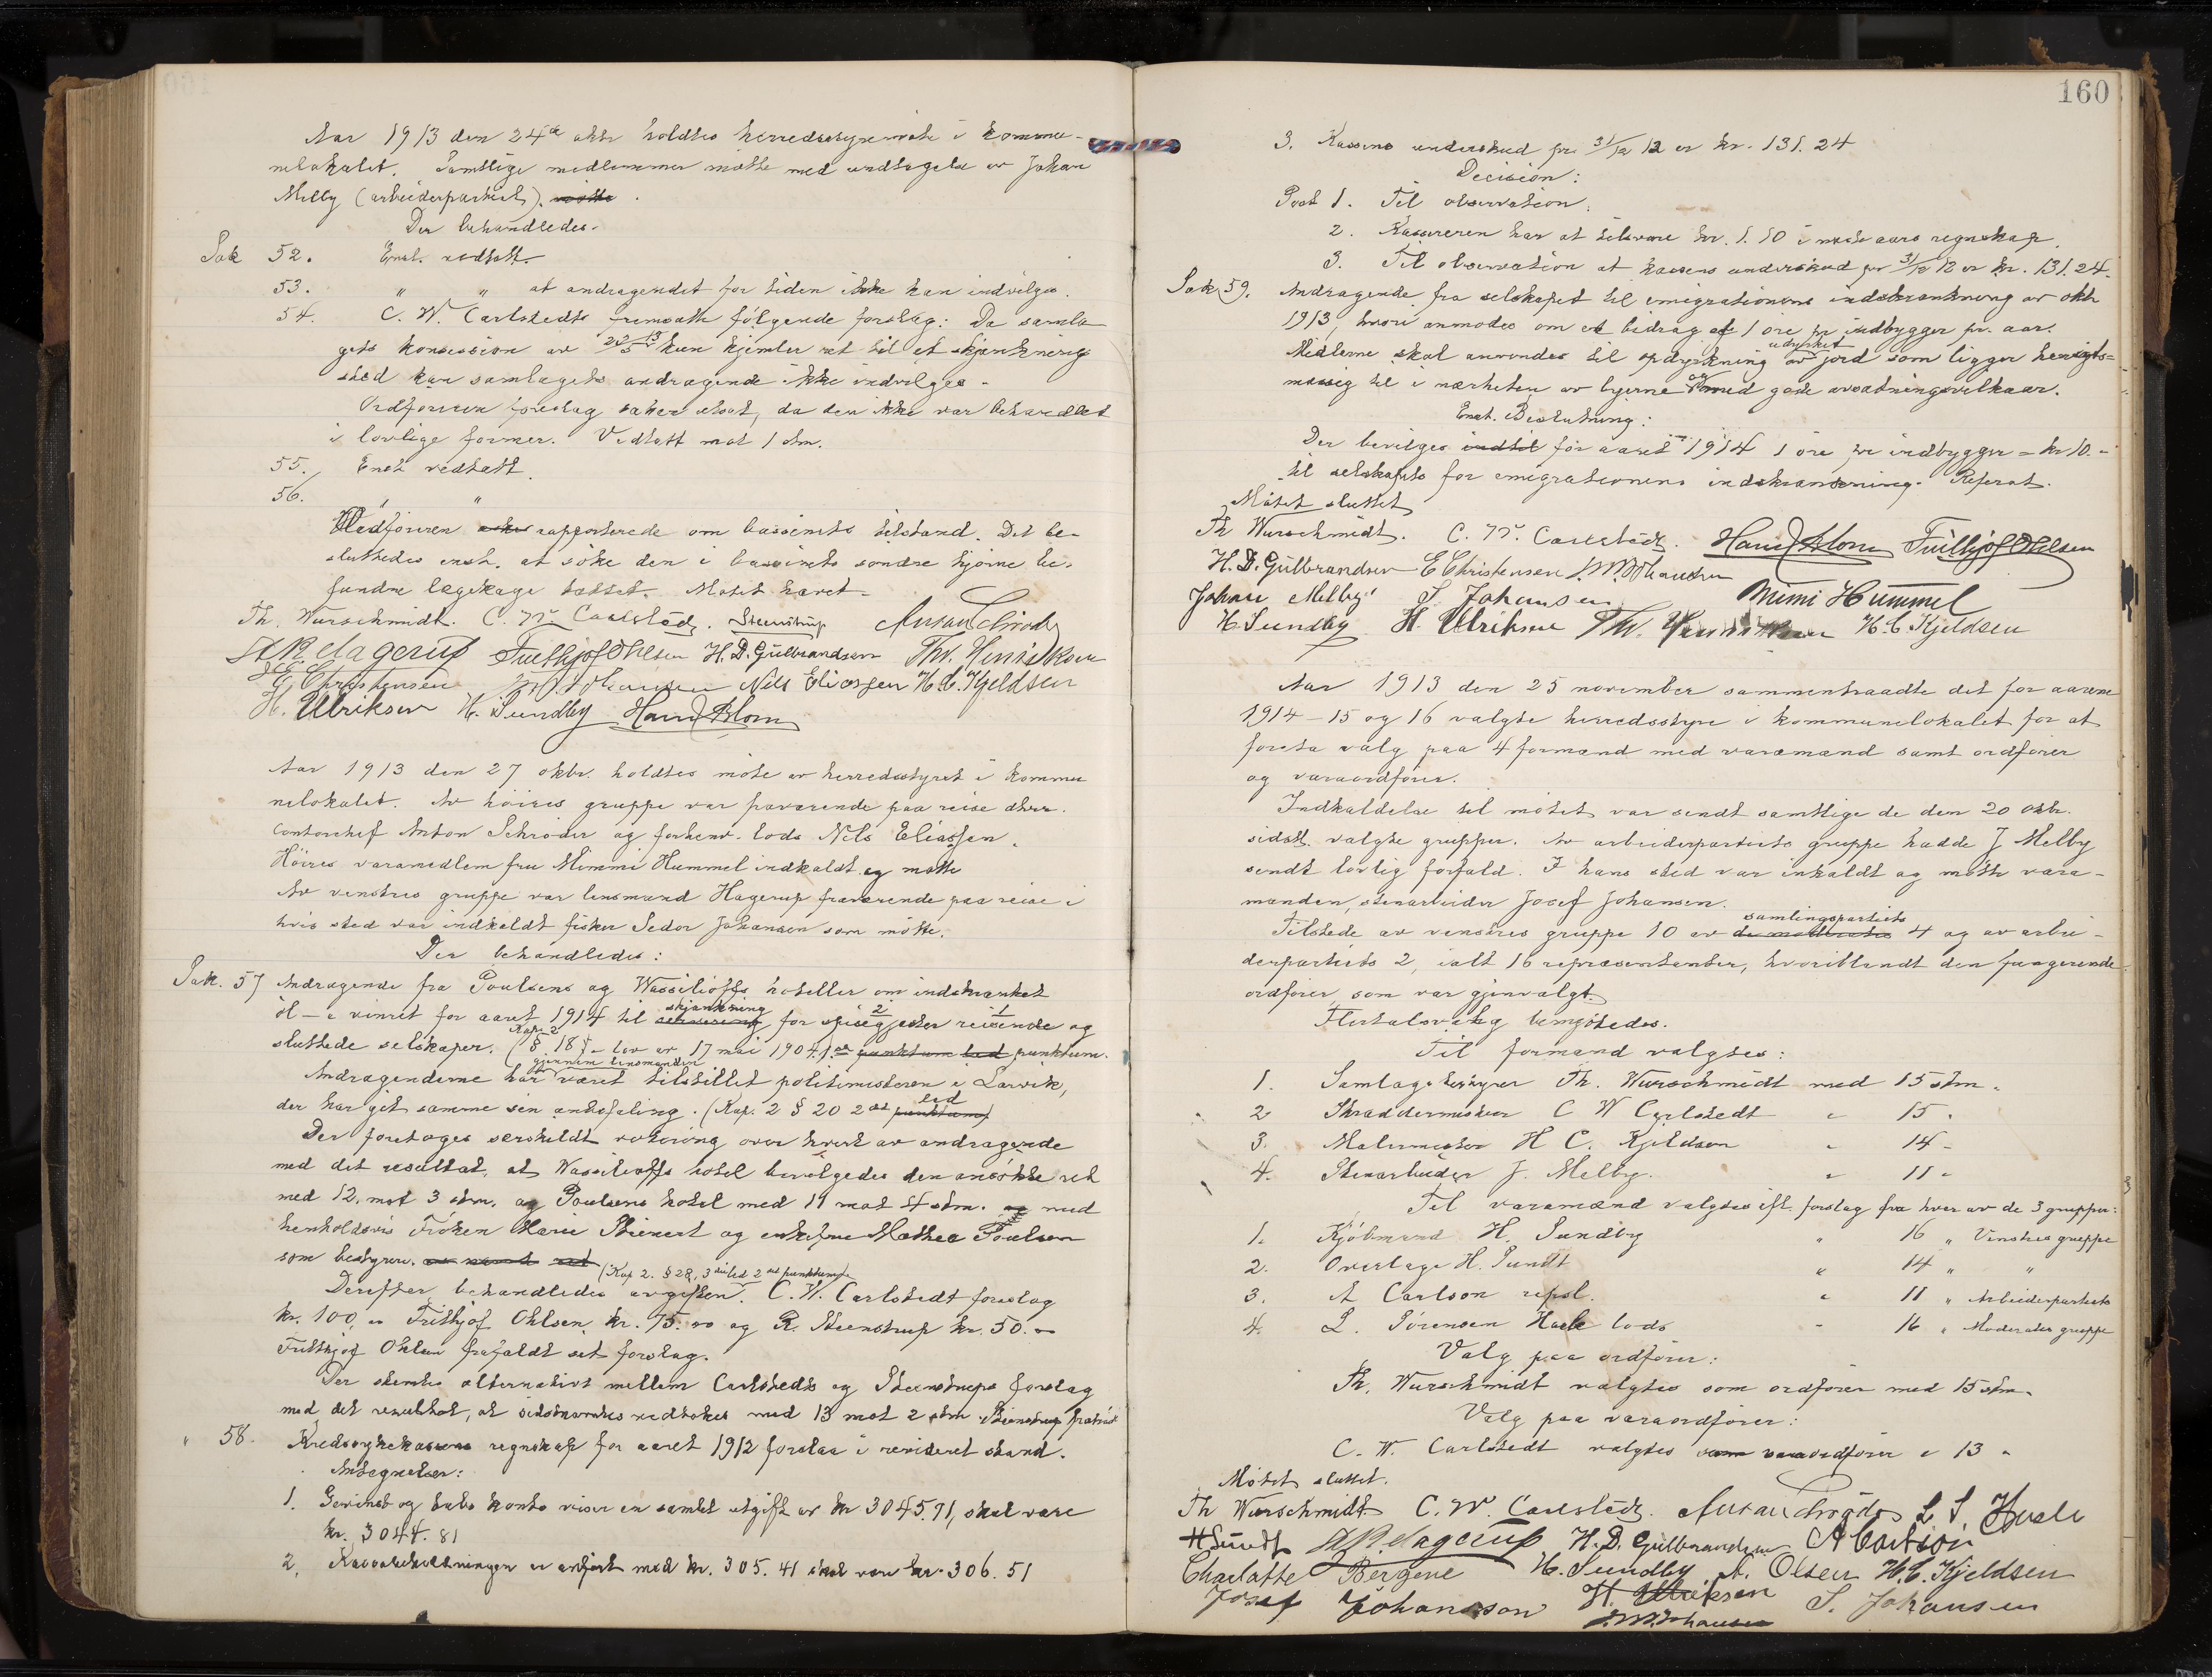 Aar 1913 den 24de oktr holdtes herredsstyremöte i kommu-
nelokalet. Samtlige medlemmer mötte med undtagelse av Johan
Melby (arbeiderpartiet). mötte.
Der behandledes.
Sak 52. Enst. vedtatt.
53. " " at andragendet for tiden ikke kan indvilges.
54. C. W. Carlstedts fremsatte följende forslag: Da samla-
gets konsession av kun hjemler ret til et skjænknings
sted kan samlagets andragende ikke indvilges.
Ordföreren foreslog saken utsat, da den ikke var behandlet
i lovlige former. Vedtatt mot 1 stm.
55. Enst. vedtatt.
56. "
Ordföreren rapporterede om bassinets tilstand. Det be-
sluttedes enst. at söke den i bassinets söndre hjörne be-
fundne lækage tættet. Mötet hævet.
Th. Wurschmidt. C. W. Carlstedt. Steenstrup Anton Schröder
Hagerup Frithjof Ohlsen H. D. Gulbrandsen Thv. Henriksen
E Christensen Johansen Nils Eliassen H. C. Kjeldsen
H. Ulriksen H. Sundby Hans Blom
Aar 1913 den 27 oktbr. holdtes möte av herredsstyret i kommu
nelokalet. Av höires gruppe var fraværende paa reise dhrr.
Contorchef Anton Schröder og forhenv. lods Nils Eliassen.
Höires varamedlem fru Mimmi Hummel indkaldt og mötte
Av venstres gruppe var lensmand Hagerup fraværende paa reise i
hvis sted var indkaldt fisker Sedor Johansen som mötte.
Der behandledes:
Sak. 57 Andragende fra Poulsens og Wassilioffs hoteller om indskrænket
öl- & vinret for aaret 1914 til servering skjænkning for spisegjester 2 reisende 1 og
sluttede selskaper. (Kap 2 § 18 lov av 17 mai 1904. punktum led punktum.
Andragenderne har gjennem lensmanden været tilstillet politimesteren i Larvik,
der har git samme sin anbefaling. (Kap. 2 § 20 2det punktum led)
Der foretoges serskildt votering over hvert av andragende
med det resultat, at Wassilioffs hotel bevilgedes den ansökte ret
med 12 mot 3 stm. og Poulsens hotel med 11 mot 4 stm. og med
henholdsvis Fröken Marie Steinert og enkefrue Mathea Poulsen
som bestyrere.
(Kap 2. § 28, 3die led 2det punktum)
Derefter behandledes avgiften. C. W. Carlstedt foreslog
kr. 100, Frithjof Ohlsen kr. 75.00 og R. Steenstrup kr. 50.
Frithjof Ohlsen frafaldt sit forslag.
Der stemtes alternativt mellem Carlstedts og Steenstrups forslag
med det resultat, at sidstnævntes vedtokes med 13 mot 2 stm. Steenstrup fratraadt
" 58. Kredssykekassens regnskap for aaret 1912 forelaa i revideret stand.
Antegnelser:
1. Gevinst og tabs konto viser en samlet utgift av kr 3045.91, skal være
kr. 3044.81
2. Kassabeholdningen er anfört med kr. 305.41 skal være kr. 306.51
160
3. Kassens underskud pr. 31/12 12 er kr. 131.24
Decision:
Post 1. Til observation.
2. Kassereren har at tilsvare kr. 1.10 i næste aars regnskap.
3. Til observation at kassens underskud pr 31/12 12 er kr. 131.24.
Sak 59. Andragende fra selskapet til emigrationens indskrænkning av oktr
1913, hvori anmodes om et bidrag af 1 öre pr indbygger pr. aar.
Midlerne skal anvendes til opdyrkning av udyrket jord som ligger hensigts-
mæssig til i nærheten av byerne og med gode avsætningsvilkaar.
Enst. Beslutning:
Der bevilges indtil for aaret 1914 1 öre pr indbygger = kr 10.-
til selskapets for emigrationens indskrænkning. Referat.
Mötet sluttet
Th Wurschmidt. C. W. Carlstedt. Hans Blom Frithjof Ohlsen
H. D. Gulbrandsen E Christensen Johansen
Johan Melby S. Johansen Mimi Hummel
H. Sundby H. Ulriksen Thv. Henriksen H. C. Kjeldsen
Aar 1913 den 25 november sammentraadte det for aarene
1914-15 og 16 valgte herredsstyre i kommunelokalet for at
foreta valg paa 4 formænd med varamænd samt ordförer
og varaordförer.
Indkaldelse til mötet var sendt samtlige de den 20 oktbr.
sidstl. valgte grupper. Av arbeiderpartiets gruppe hadde J Melby
sendt lovlig forfald. I hans sted var inkaldt og mötte vara-
manden, stenarbeider Josef Johansen.
Tilstede av venstres gruppe 10 av de moderates samlingspartiets 4 og av arbei-
derpartiets 2, ialt 16 repræsentanter, hvoriblandt den fungerende
ordförer, som var gjenvalgt.
Flertalsvalg benyttedes.
Til formænd valgtes:
1. Samlagsbestyrer Th. Wurschmidt med 15 stm.
2 Skræddermester C W Carlstedt " 15.
3. Malermester H C. Kjeldsen " 14 -
4. Stenarbeider J. Melby. " 11 -
Til varamænd valgtes eft. forslag fra hver av de 3 grupper:
1. Kjöbmand H. Sundby " 16 " Venstres gruppe
2. Overlæge H. Sundt " 14 " "
3. A Carlson repsl. " 11 " Arbeiderpartiets
4. L. Sörensen Husele lods " 16 " Moderates gruppe
Valg paa ordförer:
Th. Wurschmidt valgtes som ordförer med 15 stm.
Valg paa varaordförer:
C. W. Carlstedt valgtes som varaordförer " 13 "
Mötet sluttet.
Th Wurschmidt C. W. Carlstedt. Anton Schröder L S. Husele
H Sundt Hagerup H. D. Gulbrandsen A Carlson
Charlotte Bergene H. Sundby A. Olsen H. C. Kjeldsen
Josef Johansson H. Ulriksen S. Johansen
Johansen